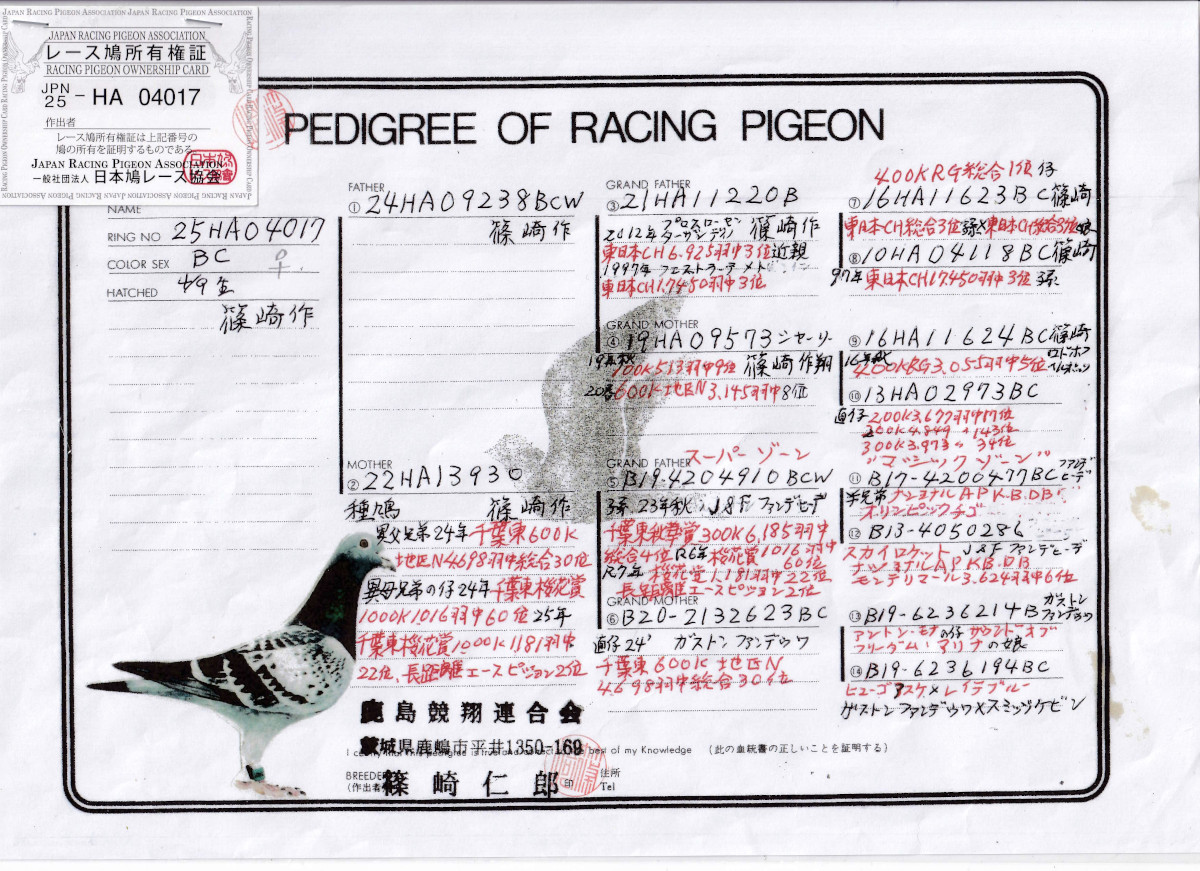 JAPAN RACING PIGEON ASSOCIATION JAPAN RACING PIGEON ASSOCIATION
JAPAN RACING PIGEON ASSOCIATION
レース鳩所有権証
RACING PIGEON OWNERSHIP CARD
JPN 25 - HA 04017
作出者
レース鳩所有権証は上記番号の
鳩の所有を証明するものである
JAPAN RACING PIGEON ASSOCIATION
一般社団法人 日本鳩レース協会
PEDIGREE OF RACING PIGEON
NAME
RING NO 25HA04017
COLOR SEX BC ♀
HATCHED
篠崎作
FATHER
① 24HA09238BCW
篠崎作
MOTHER
② 22HA13930
種鳩 篠崎作
異父兄弟24年千葉東600K
地区N4698羽中総合30位
異母兄弟の仔24年千葉東桜花賞
1000K1016羽中60位25年
千葉東桜花賞1000K1181羽中
22位、長距離エースピジョン2位
GRAND FATHER
③ 21HA11220B
2012年 篠崎作
東日本CH6.925羽中3位近親
1997年
東日本CH17.450羽中3位
GRAND MOTHER
④ 19HA09573シャーリー
19年秋 100K513羽中9位 篠崎作翔
20春600K地区N3.145羽中8位
スーパーゾーン
GRAND FATHER
⑤ B19-4204910BCW
孫 23年秋 J&Fファンデヒーデ
千葉東秋華賞300K6,185羽中
総合4位 R6年桜花賞1016羽中60位
R7年 桜花賞1,181羽中22位
長距離エースピジョン2位
GRAND MOTHER
⑥ B20-2132623BC
直仔24' ガストンファンデウワ
千葉東600K地区N
4698羽中総合30位
400KRG総合1位仔
⑦ 16HA11623BC篠崎
東日本CH総合3位孫×東日本CH総合3位娘
⑧ 10HA04118BC篠崎
97年東日本CH17.450羽中3位孫
⑨ 16HA11624BC篠崎
16年秋
400KRG3,055羽中5位
⑩ 13HA02973BC
直仔200K3,677羽中17位
200K4.849〃143位
300K3.973〃34位
"マジックゾーン"
⑪ B17-4200477BC ファンデヒーデ
半兄弟ナショナルAPK.B.DB
オリンピックチゴ
⑫ B13-4050286
スカイロケット J&Fファンデヒーデ
ナショナルAPKB.DB
モンテリマール3.624羽中6位
⑬ B19-6236214B ガストンファンデウワ
アントン・モナの仔サウンドオブ
フリーダム・アリナの娘
⑭ B19-6236194BC
ヒューゴアスケ×レイデブルー
ゲストンファンデウワ×スミッツケビン
鹿島競翔連合会
茨城県鹿嶋市平井1350-169
best of my Knowledge (此の血統書の正しいことを証明する)
BREEDER
(作出者) 篠崎仁郎 印
住所
Tel